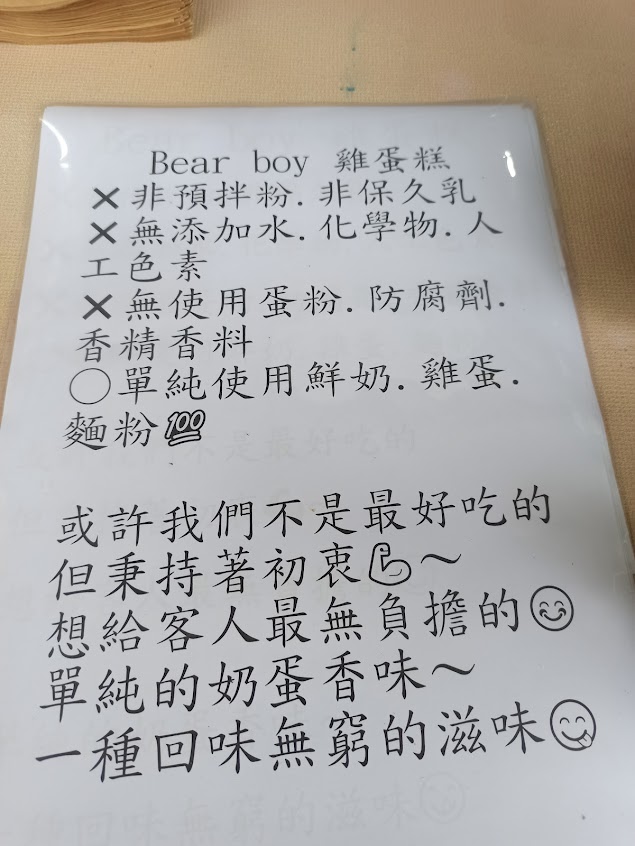 Bear boy 雞蛋糕
❌非預拌粉.非保久乳
❌無添加水.化學物.人
工色素
❌無使用蛋粉.防腐劑.
香精香料
◯單純使用鮮奶.雞蛋.
麵粉💯
或許我們不是最好吃的
但秉持著初衷💪～
想給客人最無負擔的😊
單純的奶蛋香味～
一種回味無窮的滋味😋